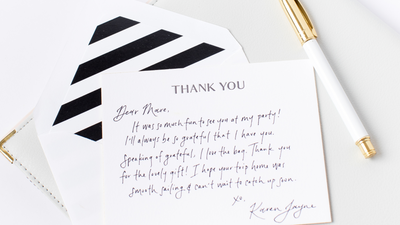 THANK YOU
Dear Mave,
It was so much fun to see you at my party!
I'll always be so grateful that I have you.
Speaking of grateful, I love the bag. Thank you
for the lovely gift! I hope your trip home was
smooth sailing & can't wait to catch up soon.
xo,
Karen Jayne